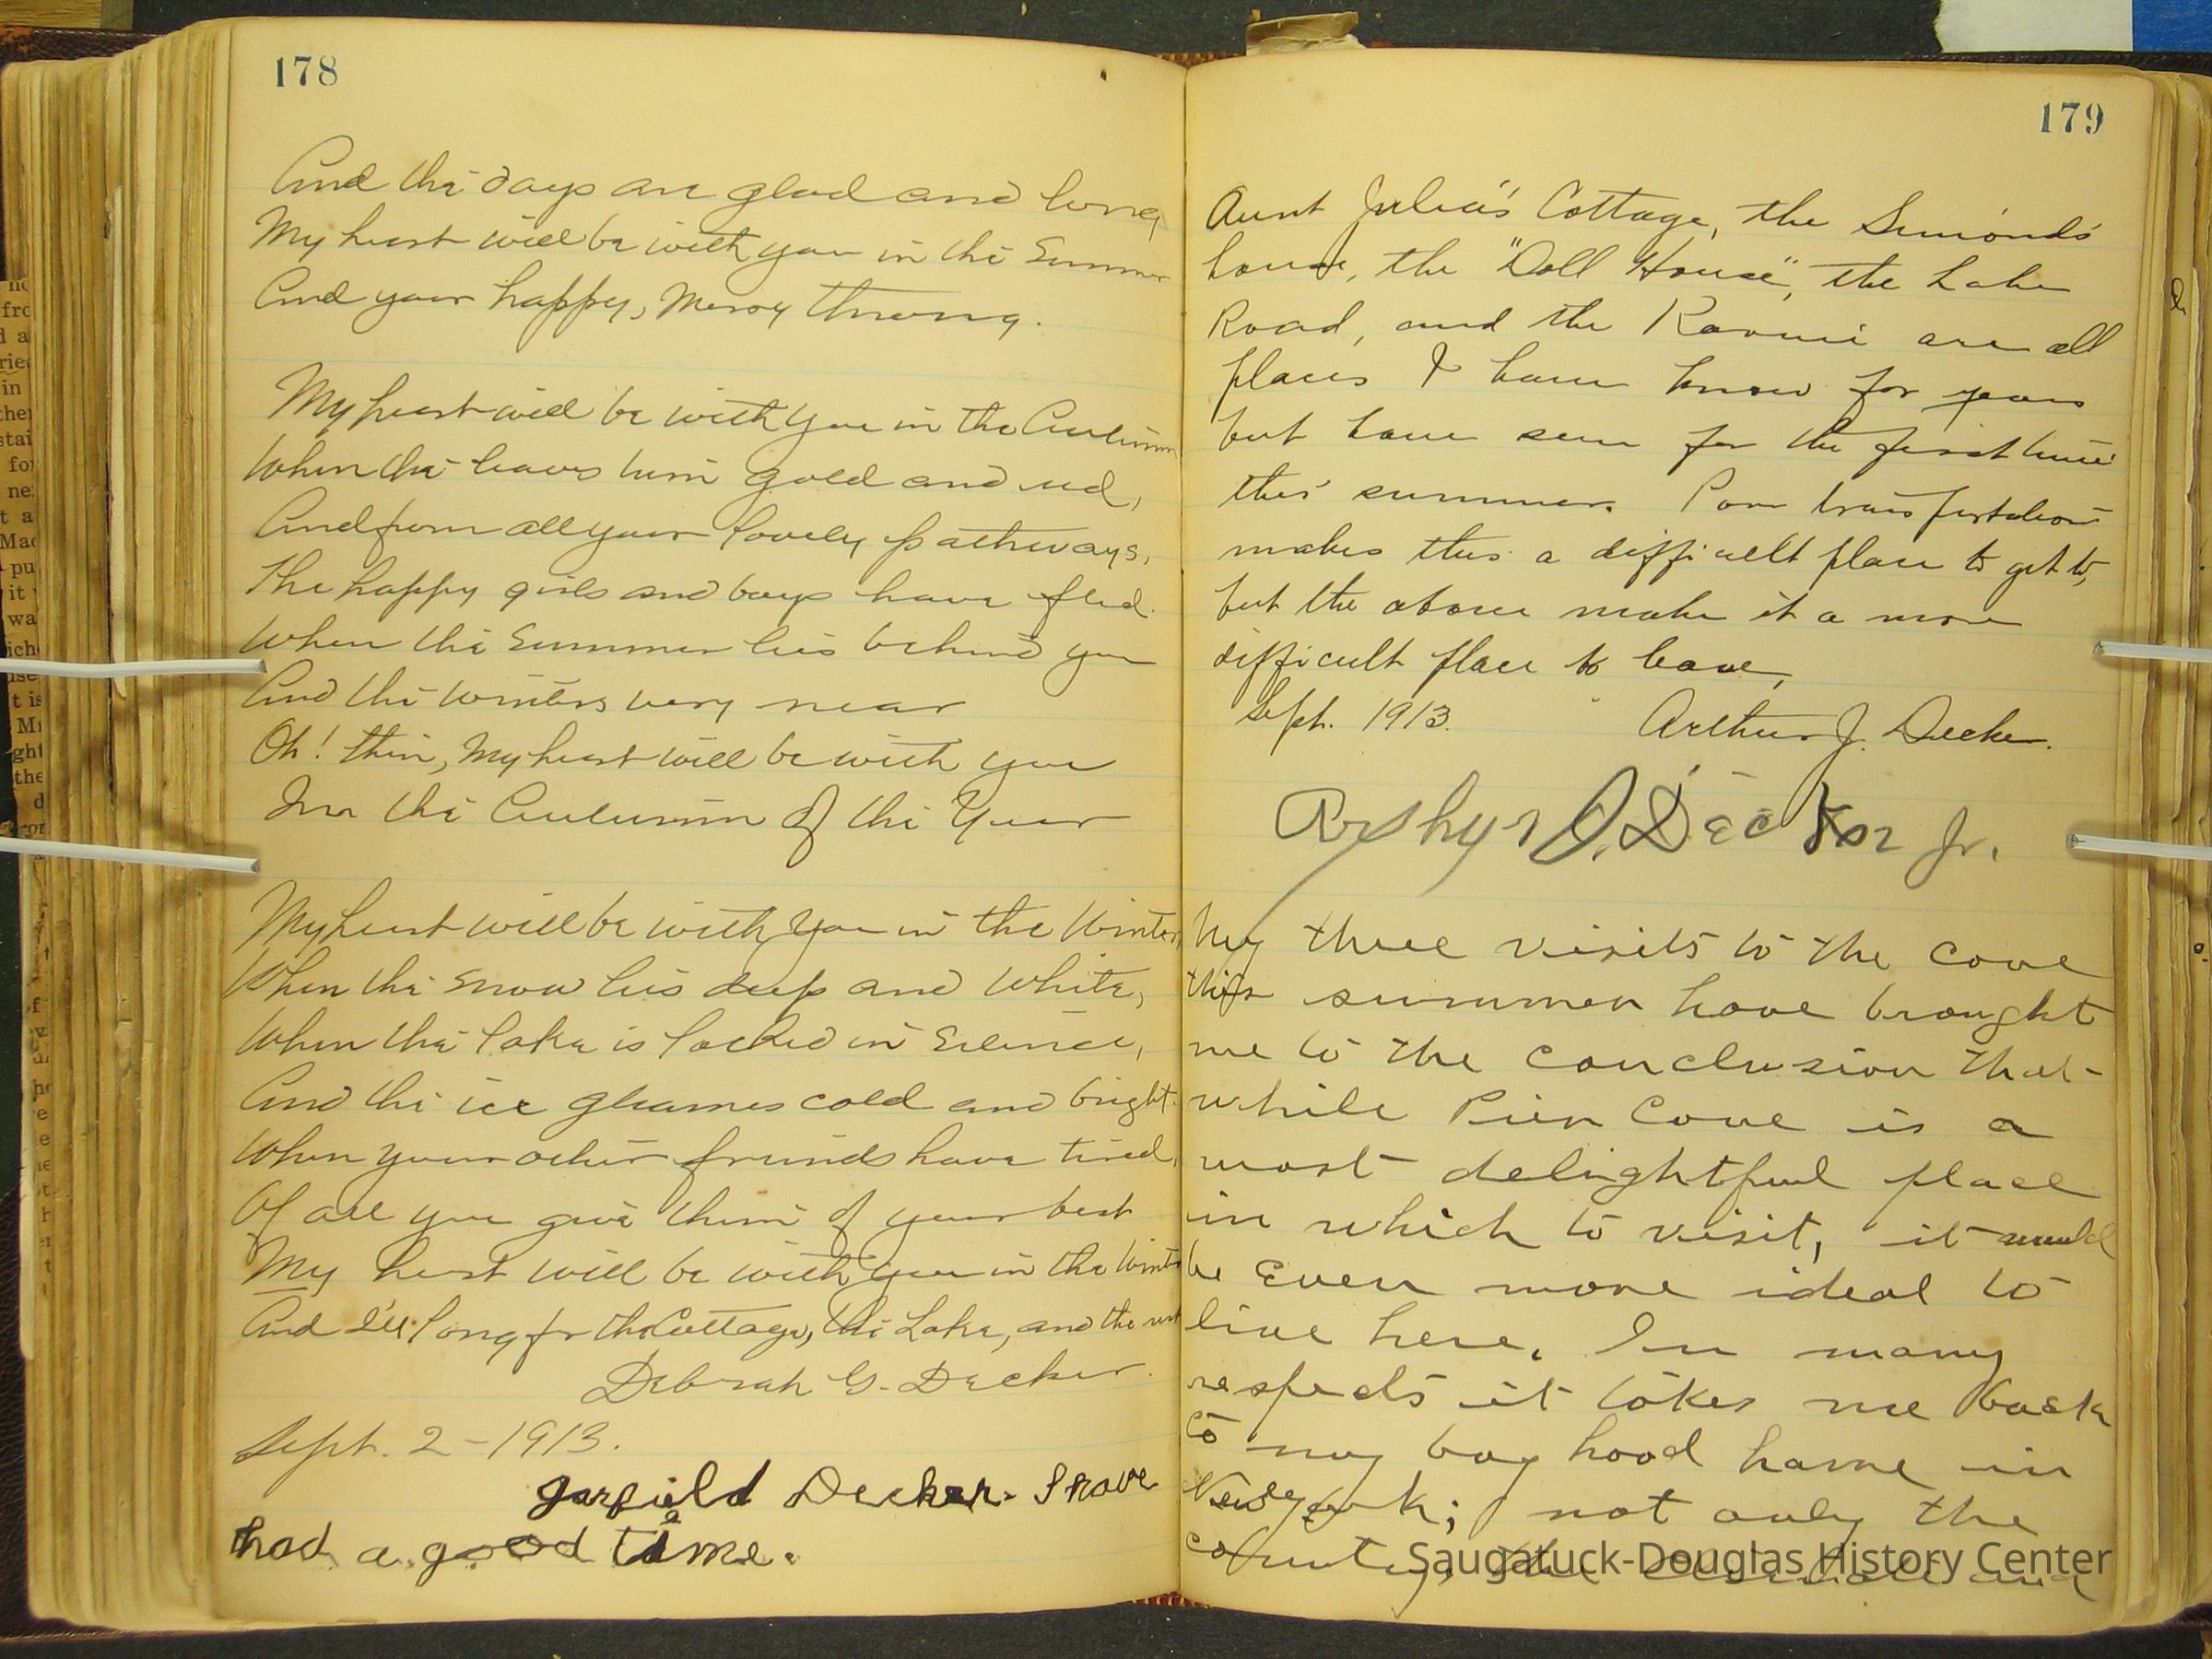 178
And the days are glad and long
My heart will be with you in the Summer
And your happy, merry throng.
My heart will be with you in the Autumn
When the leaves turn gold and red,
And from all your lovely pathways,
The happy girls and boys have fled.
When the Summer lies behind you
And the winters very near
Oh! then, my heart will be with you
In the Autumn of the Year
My heart will be with you in the Winter,
When the snow lies deep and white,
When the lake is locked in silence,
And the ice gleames cold and bright.
When your other friends have tired,
Of all you give them of your best
My heart will be with you in the Winter
And I'll long for the Cottage, the Lake, and the rest
Deborah G. Decker.
Sept. 2-1913.
Garfield Decker. I have
had a good time.
179
Aunt Julia's Cottage, the Simonds'
house, the "Doll House", the Lake
Road, and the Ravine are all
places I have know for years
but have seen for the first time
this summer. Poor transportation
makes this a difficult place to get to,
but the above make it a more
difficult place to leave,
Sept. 1913. Arthur J. Decker.
J. Jr.
My three visits to the cove
this summer have brought
me to the conclusion that
while Pier Cove is a
most delightful place
in which to visit, it would
be even more ideal to
live here. In many
respects it takes me back
to my boy hood home in
New York; not only the
country, the and
Saugatuck-Douglas History Center